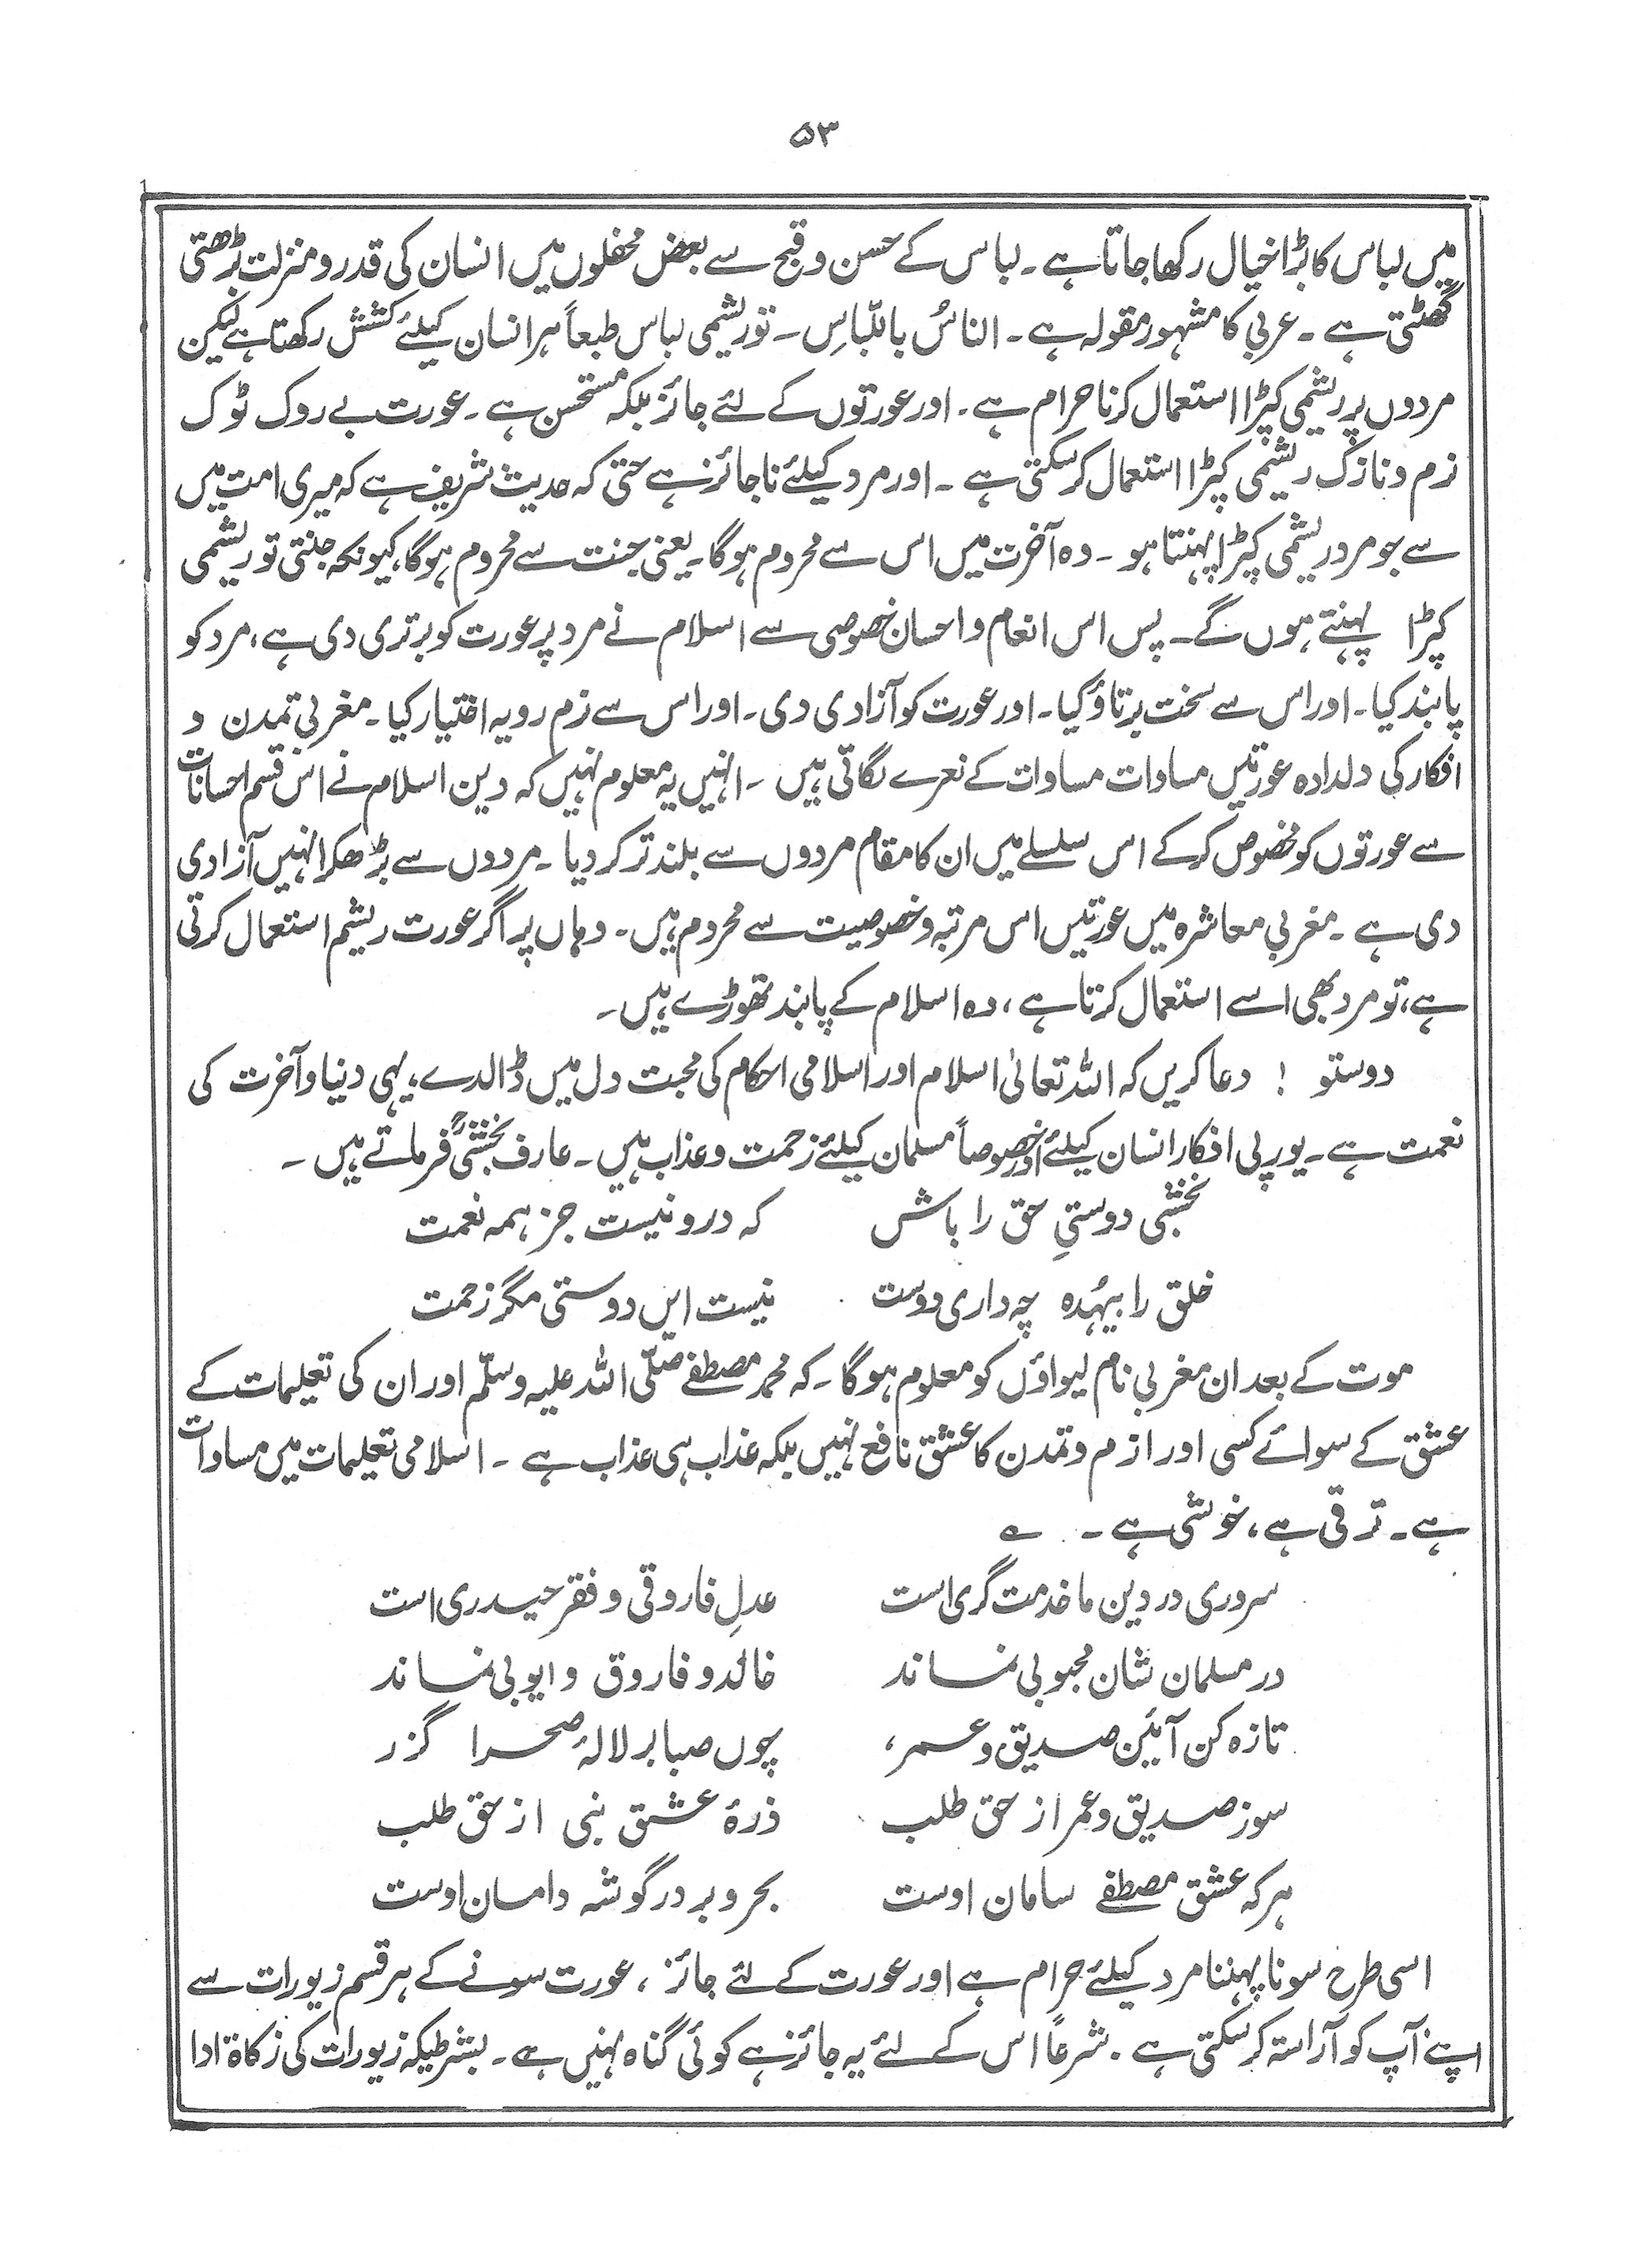 ۵۳
میں لباس کا بڑا خیال رکھا جاتا ہے۔ لباس کے حسن و قبح سے بعض محفلوں میں انسان کی قدر و منزلت بڑھتی
گھٹتی ہے۔ عربی کا مشہور مقولہ ہے۔ الناسُ باللّباسِ۔ تو ریشمی لباس طبعاً ہر انسان کیلئے کشش رکھتا ہے لیکن
مردوں پر ریشمی کپڑا استعمال کرنا حرام ہے۔ اور عورتوں کے لئے جائز بلکہ مستحسن ہے۔ عورت بے روک ٹوک
نرم و نازک ریشمی کپڑا استعمال کرسکتی ہے۔ اور مرد کیلئے ناجائز ہے حتیٰ کہ حدیث شریف ہے کہ میری امت میں
سے جو مرد ریشمی کپڑا پہنتا ہو۔ وہ آخرت میں اس سے محروم ہوگا۔ یعنی جنت سے محروم ہوگا، کیونکہ جنتی تو ریشمی
کپڑا پہنتے ہوں گے۔ پس اس انعام و احسان خصوصی سے اسلام نے مرد پر عورت کو برتری دی ہے، مرد کو
پابند کیا۔ اور اس سے سخت برتاؤ کیا۔ اور عورت کو آزادی دی۔ اور اس سے نرم رویہ اختیار کیا۔ مغربی تمدن و
افکار کی دلدادہ عورتیں مساوات مساوات کے نعرے لگاتی ہیں۔ انہیں یہ معلوم نہیں کہ دین اسلام نے اس قسم احسانات
سے عورتوں کو مخصوص کرکے اس سلسلے میں ان کا مقام مردوں سے بلند تر کر دیا۔ مردوں سے بڑھکر انہیں آزادی
دی ہے۔ مغربی معاشرہ میں عورتیں اس مرتبہ و خصوصیت سے محروم ہیں۔ وہاں پر اگر عورت ریشم استعمال کرتی
ہے، تو مرد بھی اسے استعمال کرتا ہے، وہ اسلام کے پابند تھوڑے ہیں۔
دوستو ! دعا کریں کہ اللہ تعالیٰ اسلام اور اسلامی احکام کی محبت دل میں ڈالدے، یہی دنیا و آخرت کی
نعمت ہے۔ یورپی افکار انسان کیلئے اور خصوصاً مسلمان کیلئے زحمت و عذاب ہیں۔ عارف نخشبیؒ فرماتے ہیں۔
نخشبی دوستیِ حق را باش کہ درو نیست جز ہمہ نعمت
خلق را بیہُدہ چہ داری دوست نیست ایں دوستی مگر زحمت
موت کے بعد ان مغربی نام لیواؤں کو معلوم ہوگا۔ کہ محمد مصطفےٰ صلّی اللہ علیہ وسلّم اور ان کی تعلیمات کے
عشق کے سوائے کسی اور ازم و تمدن کا عشق نافع نہیں بلکہ عذاب ہی عذاب ہے۔ اسلامی تعلیمات میں مساوات
ہے۔ ترقی ہے، خوشی ہے۔ ؎
سروری در دین ما خدمت گری است عدلِ فاروقی و فقر حیدری است
در مسلمان شان محبوبی نماند خالد و فاروق و ایوبی نماند
تازہ کن آئین صدیق و عمر، چوں صبا بر لالۂ صحرا گزر
سوز صدیق و عمر از حق طلب ذرۂ عشق نبی از حق طلب
ہر کہ عشق مصطفےٰ سامان اوست بحر و بر در گوشہ دامان اوست
اسی طرح سونا پہننا مرد کیلئے حرام ہے اور عورت کے لئے جائز، عورت سونے کے ہر قسم زیورات سے
اپنے آپ کو آراستہ کرسکتی ہے۔ شرعاً اس کے لئے یہ جائز ہے کوئی گناہ نہیں ہے۔ بشرطیکہ زیورات کی زکاۃ ادا